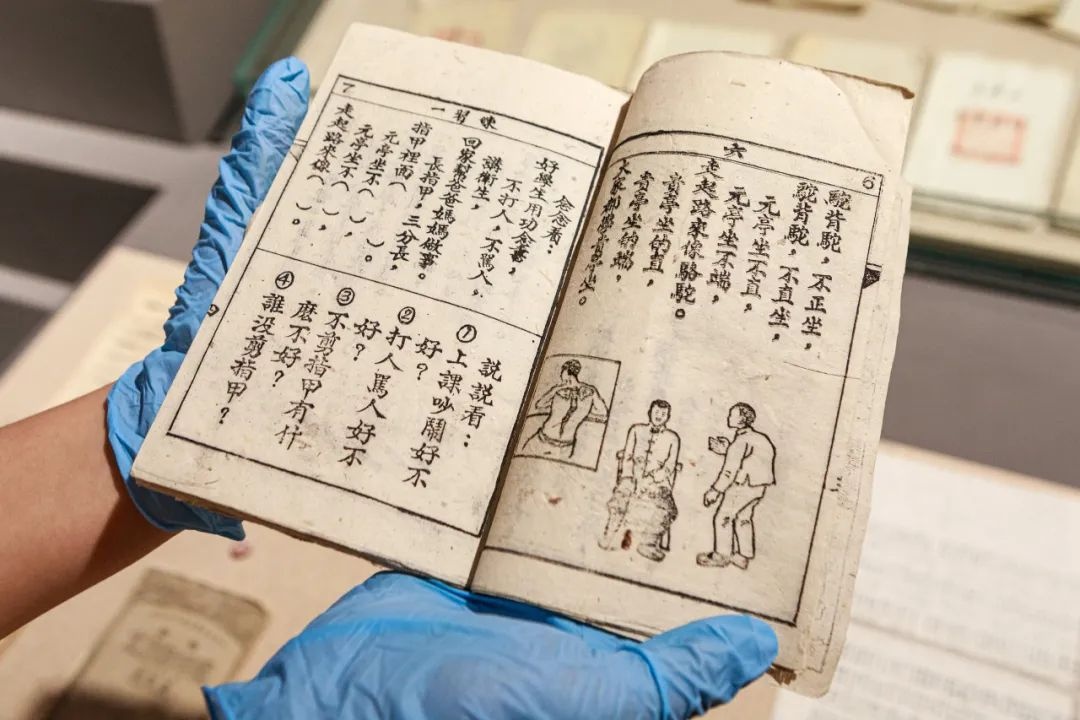 6
六
駝背駝，不正坐，
駝背駝，不直坐，
元亭坐不直，
元亭坐不端，
走起路來像駱駝。
亭坐的直，
亭坐的端，
大家都學亭坐。
7
練習一
念念看：
好學生用功念書，
不打人，不罵人，
講衛生，
回家幫爸爸媽媽做事。
長指甲，三分長，
指甲裡面（　）。
元亭坐不（　），
元亭坐不（　），
走起路來像（　）。
説説看：
①上課吵鬧好不
好？
②打人罵人好不
好？
③不剪指甲有什
麼不好？
④誰没剪指甲？